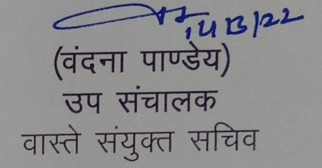 14/3/22
(वंदना पाण्डेय)
उप संचालक
वास्ते संयुक्त सचिव